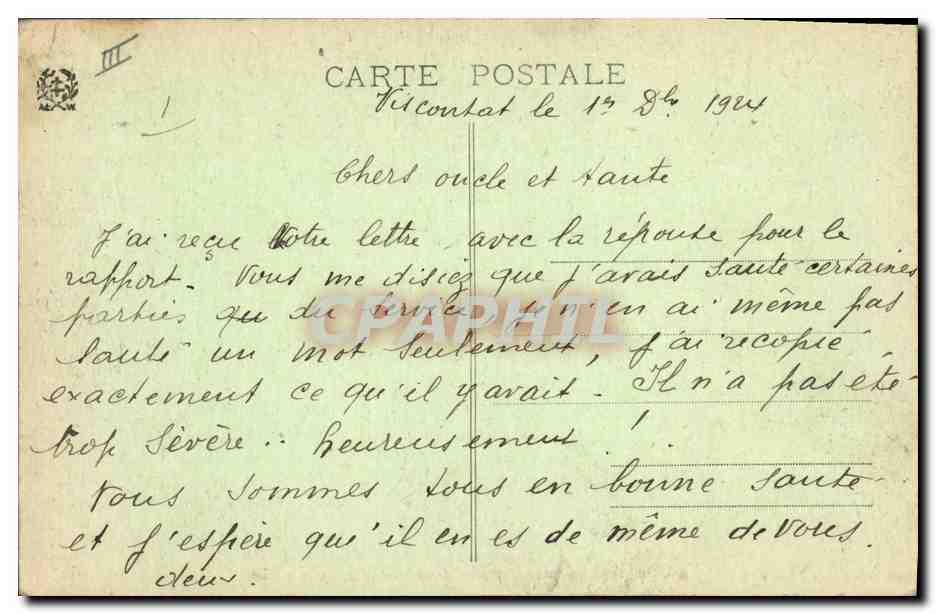 III
1
CARTE POSTALE
Viscontat le 1er Dbr. 1924
Chers oncle et tante
J'ai reçu Votre lettre, avec la réponse pour le
rapport. Vous me disiez que j'avais sauté certaines
parties qu du service, je n'en ai même pas
sauté un mot seulement, j'ai recopié
exactement ce qu'il y avait. Il n'a pas été
trop sévère.. heureusement!.
Nous sommes tous en bonne santé
et j'espère qu'il en es de même de vous
deux.
CPAPHIL